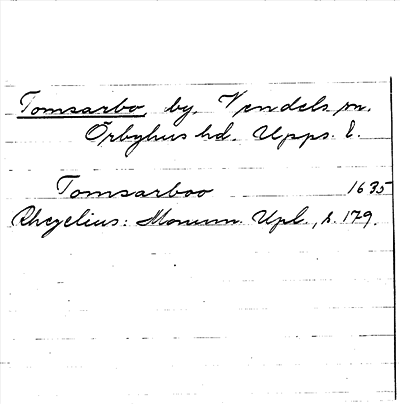 Tomsarbo, by, Vendels sn.
Örbyhus hd. Upps. l.
Tomsarboo 1635
Rhezelius: Monum. Upl., s. 179.